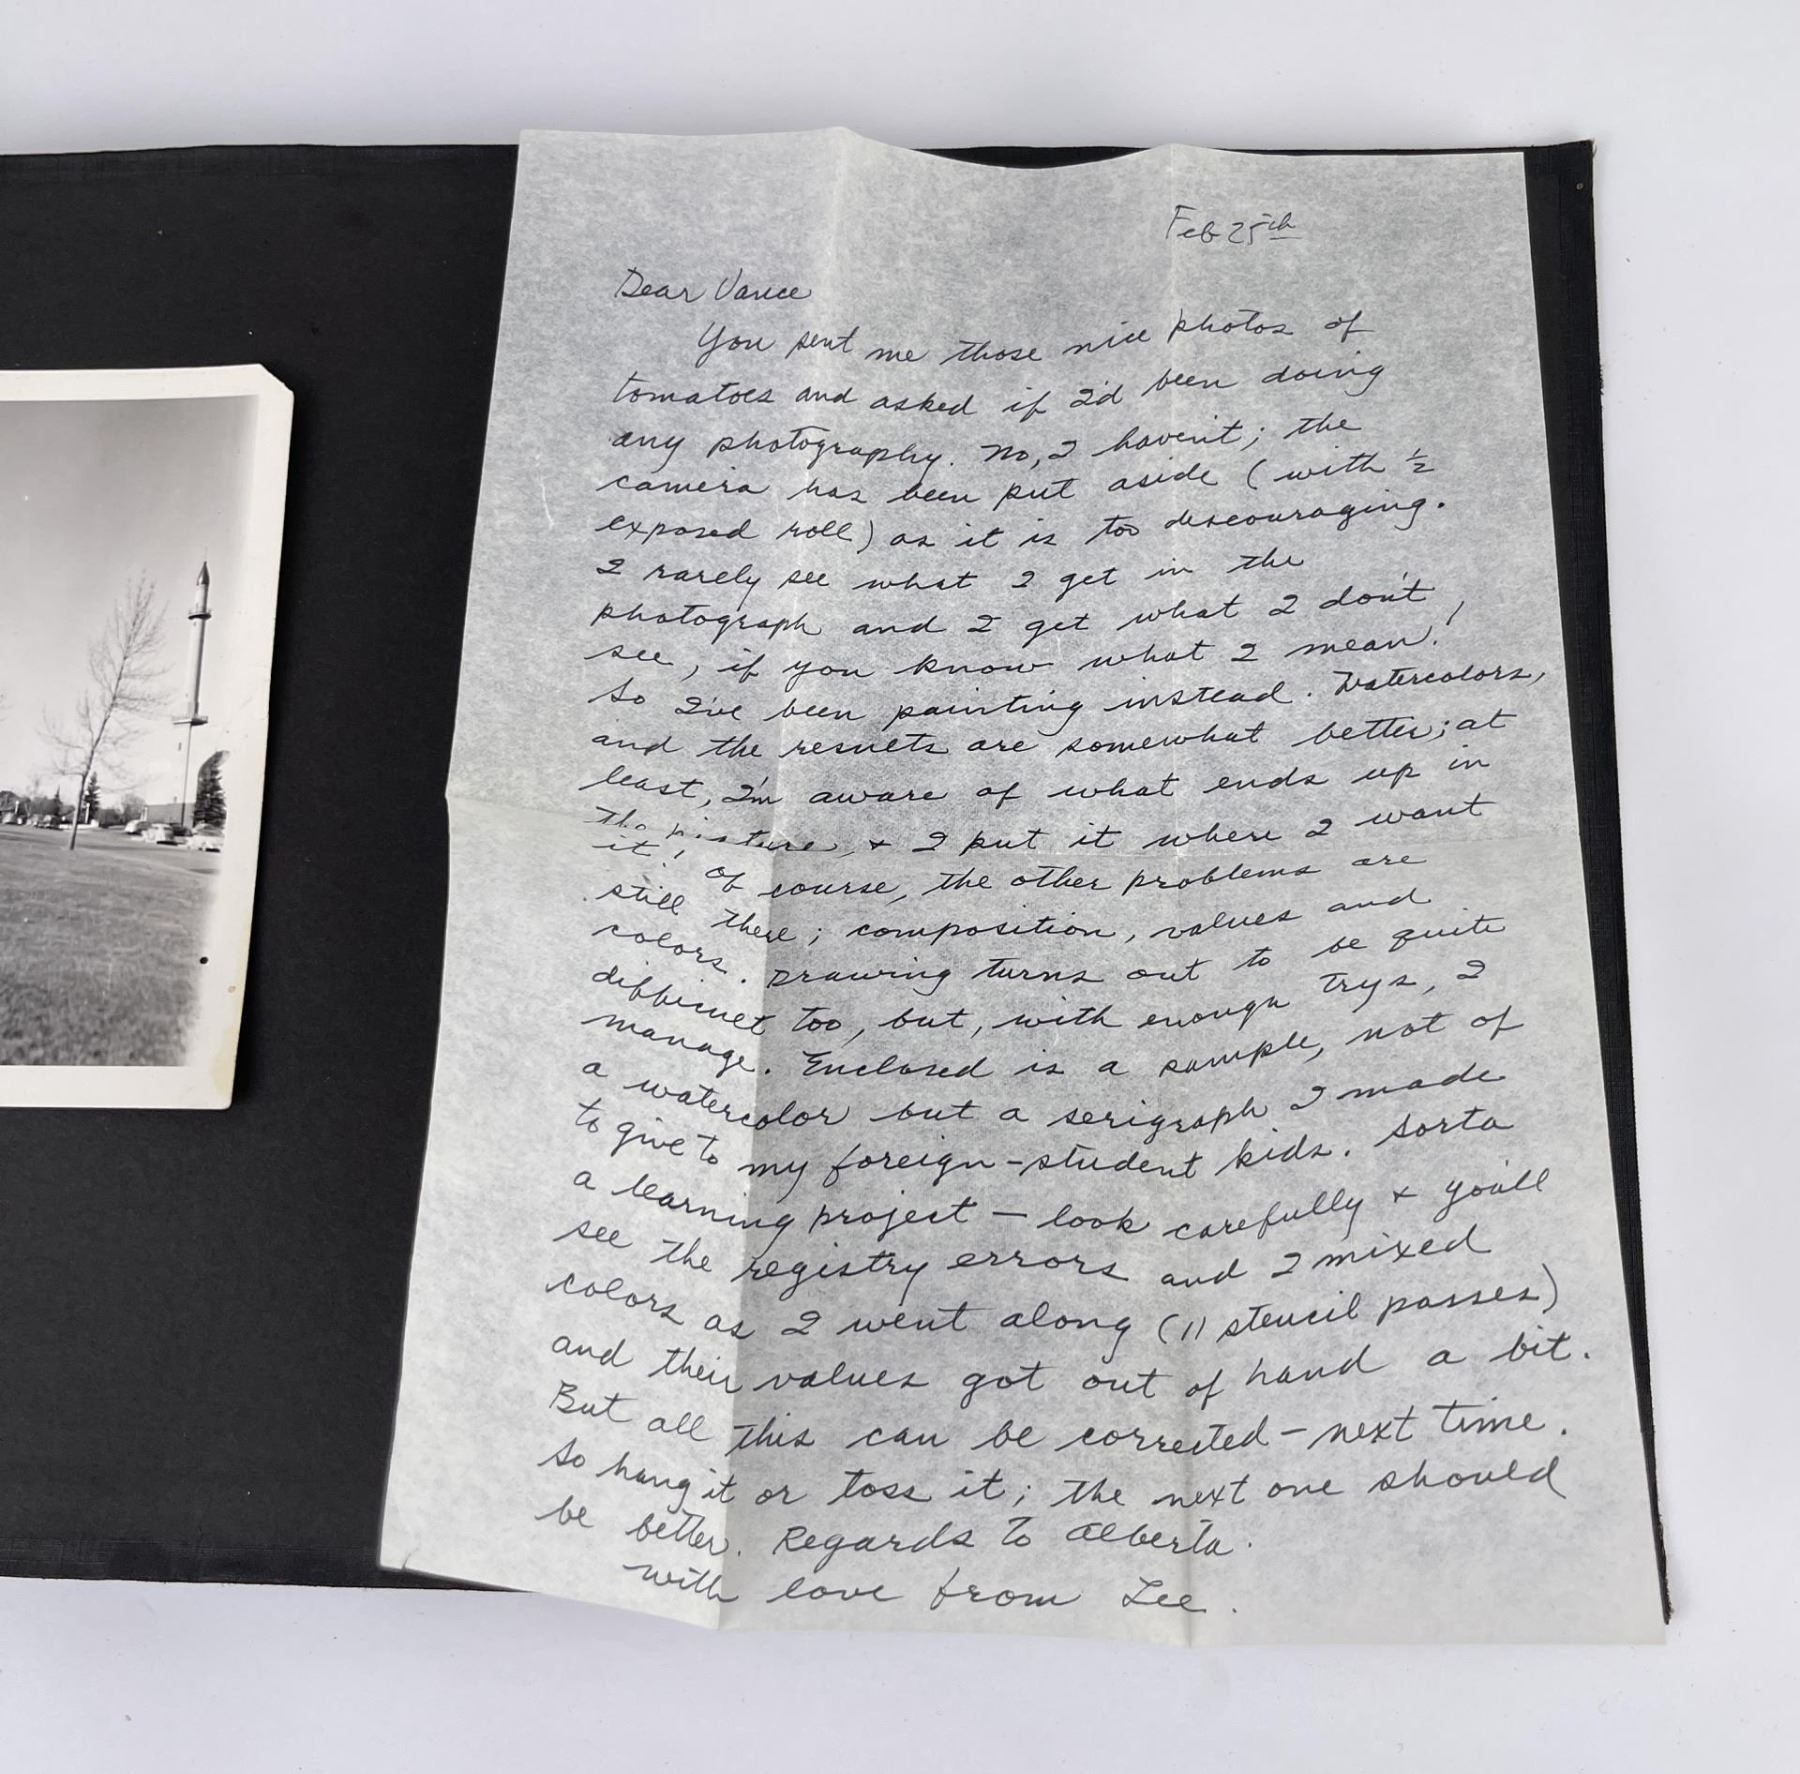 Feb 25th
Dear Vance
You sent me those nice photos of
tomatoes and asked if I'd been doing
any photography. No, I haven't; the
camera has been put aside (with ½
exposed roll) as it is too discouraging.
I rarely see what I get in the
photograph and I get what I don't
see, if you know what I mean!
So I've been painting instead. Watercolors,
and the results are somewhat better; at
least, I'm aware of what ends up in
the picture, & I put it where I want
it! Of course, the other problems are
still there; composition, values and
colors. Drawing turns out to be quite
difficult too, but, with enough trys, I
manage. Enclosed is a sample, not of
a watercolor but a serigraph I made
to give to my foreign-student kids. Sorta
a learning project — look carefully & you'll
see the registry errors and I mixed
colors as I went along (11 stencil passes)
and their values got out of hand a bit.
But all this can be corrected - next time.
So hang it or toss it; the next one should
be better. Regards to Alberta.
with love from Lee.